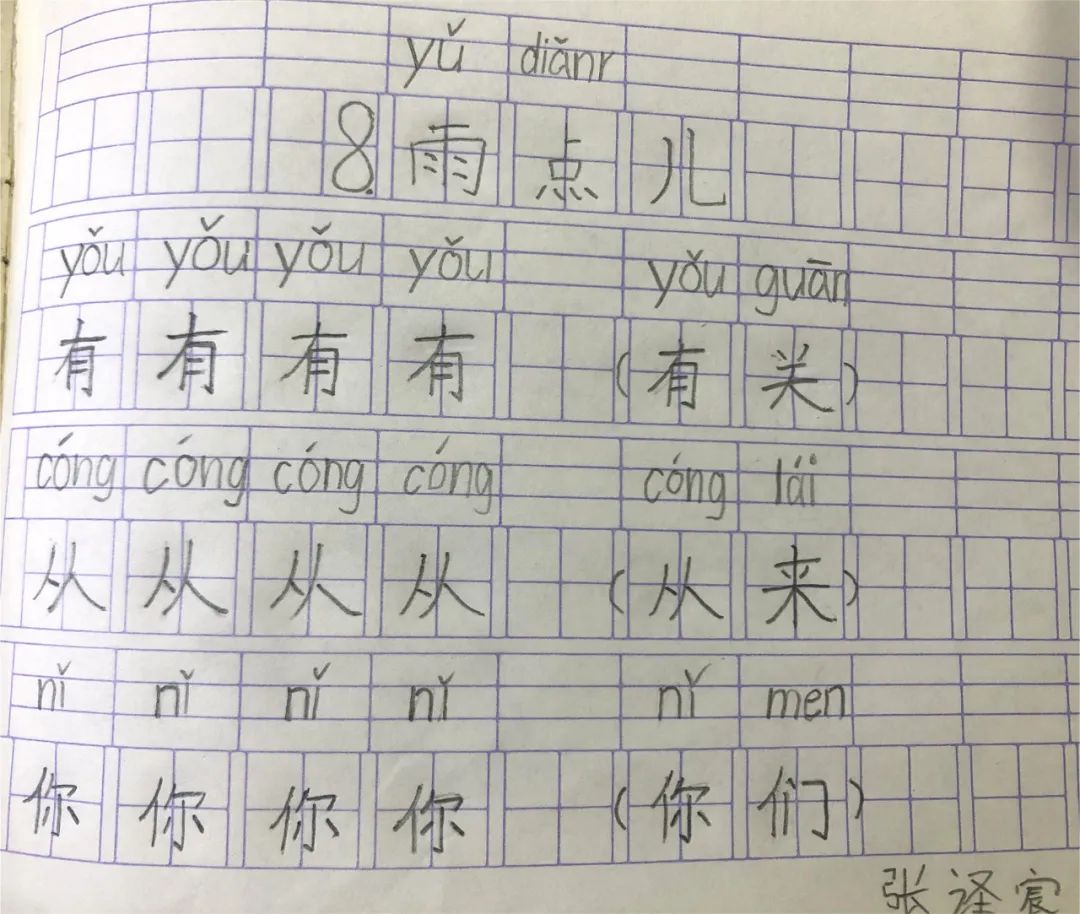 yǔ diǎnr
8.雨点儿
yǒu yǒu yǒu yǒu yǒu guān
有 有 有 有 (有关)
cóng cóng cóng cóng cóng lái
从 从 从 从 (从来)
nǐ nǐ nǐ nǐ nǐ men
你 你 你 你 (你们)
张译宸